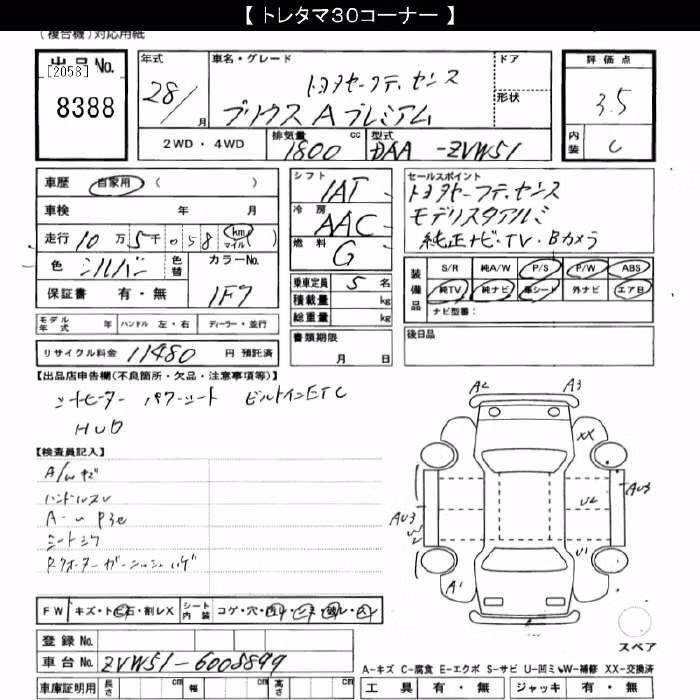 【 トレタマ30コーナー 】
(複合機)対応用紙
出品 No.
[2058]
8388
年式
28/
月
車名・グレード
トヨタセーフティセンス
プリウス Aプレミアム
ドア
形状
評価点
3.5
内装
C
2WD ・ 4WD
排気量
1800 cc
型式
DAA -ZVW51
車歴 自家用 ( )
車検 年 月
走行 10 万 5 千 058 km マイル ( )
色 シルバー 色替
カラーNo.
1F7
保証書 有・無
シフト
IAT
冷房
AAC
燃料
G
乗車定員 5 名
積載量 kg
総重量 kg
セールスポイント
トヨタセーフティセンス
モデリスタアルミ
純正ナビ・TV・Bカメラ
装備品
S/R 純A/W P/S P/W ABS
純TV 純ナビ 革シート 外ナビ エアB
ナビ型番:
モデル年式 年 ハンドル 左・右 ディーラー・並行
リサイクル料金 11480 円 預託済
書類期限
月 日
後日品
【出品店申告欄(不良箇所・欠品・注意事項等)】
シートヒーター パワーシート ビルトインETC
HUD
【検査員記入】
A/wキズ
ハンドルスレ
シートシワ
A2
A3
XX
AU3
U2
AU3
U1
A1
FW キズ・トビ石・割レX シート内装 コゲ・穴
スペア
登録 No.
車台 No. ZVW51-6008899
A-キズ C-腐食 E-エクボ S-サビ U-凹ミ W-補修 XX-交換済
車庫証明用 長さ cm 幅 cm 高さ cm
工具 有・無 ジャッキ 有・無